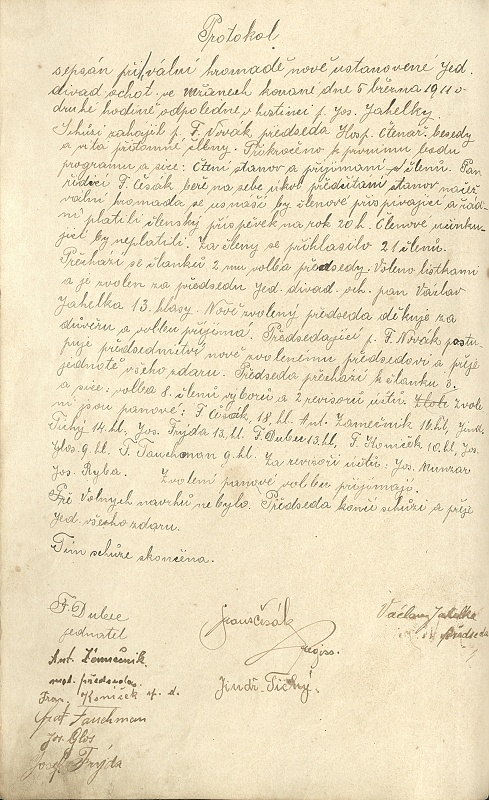 Protokol
sepsán při valné hromadě nově ustanovené Jed.
divad. ochot. ve Mžanech konané dne 5 března 1911 o
druhé hodině odpoledne v hostinci p. Jos. Jahelky
Schůzi zahájil p. F. Novák předseda Hosp. Čtenář. besedy
a vítá přítomné členy. Přikročeno k prvnímu bodu
programu a sice: Čtení stanov a přijímání členů. Pan
řídící F. Čišák béře na sebe úkol předčítání stanov načež
valní hromada se usnáší by členové přispívající a řád-
ní platili členský příspěvek na rok 20 h. Členové účinku-
jící by neplatili. Za členy se přihlásilo 21 členů.
Přechází se článku 2 mu volba předsedy. Voleno lístkami
a je zvolen za předsedu Jed. divad. och. pan Václav
Jahelka 13. hlasy. Nově zvolený předseda děkuje za
důvěru a volbu přijímá. Předsedající p. F. Novák postu-
puje předsednictví nově zvolenému předsedovi a přeje
jednotě všeho zdaru. Předseda přechází k článku 3.
a sice: volba 8. členů výborů a 2 revisorů účtů. Zvole
ni jsou panové: F. Čišák, 18. hl. Ant. Zámečník 16 hl, Jind.
Tichý 14. hl. Jos. Frýda 13. hl. F. Dubec 13. hl, F. Koníček 10. hl, Jos.
Glos 9. hl. F. Fauchman 9 hl. Za revisoři účtů: Jos. Munzar
Jos. Ryba. Zvolení panové volbu přijímají.
Při Volných navrhů nebylo. Předseda končí schůzi a přeje
Jed. všeho zdaru.
Tím schůze skončena.
F. Dubec
jednatel
Frant. Čišák
Václav Jahelka
předseda
Ant. Zámečník
míst. předseda
Jindř. Tichý.
Fran. Koníček
Fauchman
Jos. Glos
Josef Frýda